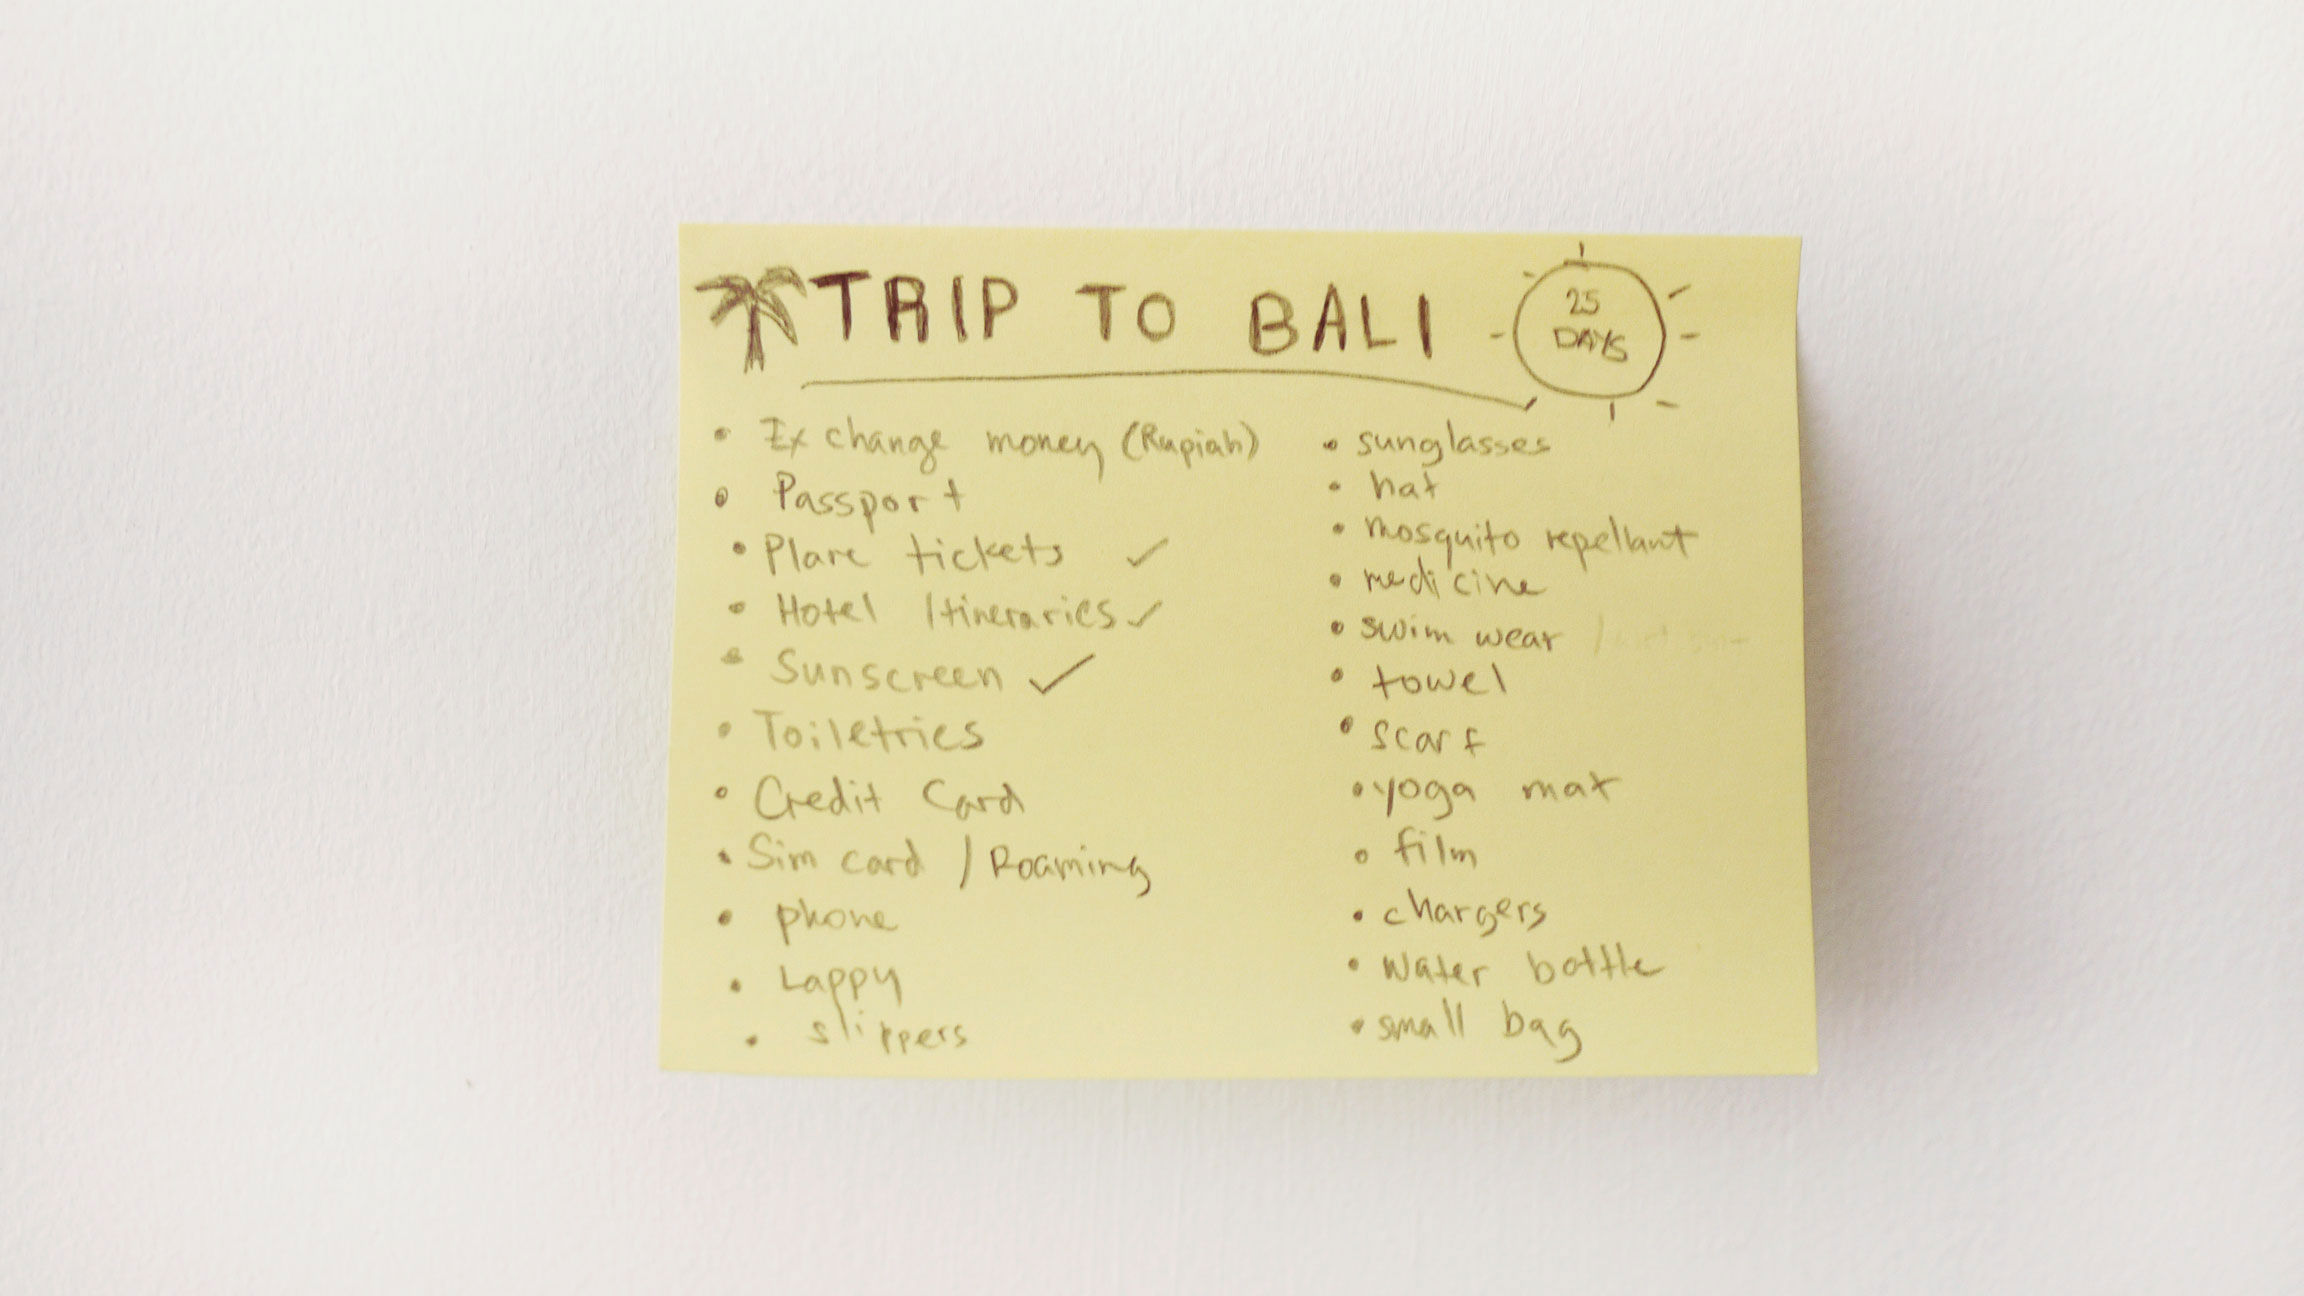 TRIP TO BALI
25
DAYS
• Exchange money (Rupiah)
• Passport
• Plane tickets ✓
• Hotel Itineraries ✓
• Sunscreen ✓
• Toiletries
• Credit Card
• Sim card / Roaming
• phone
• Lappy
• slippers
• sunglasses
• hat
• mosquito repellant
• medicine
• swim wear
• towel
• scarf
• yoga mat
• film
• chargers
• water bottle
• small bag